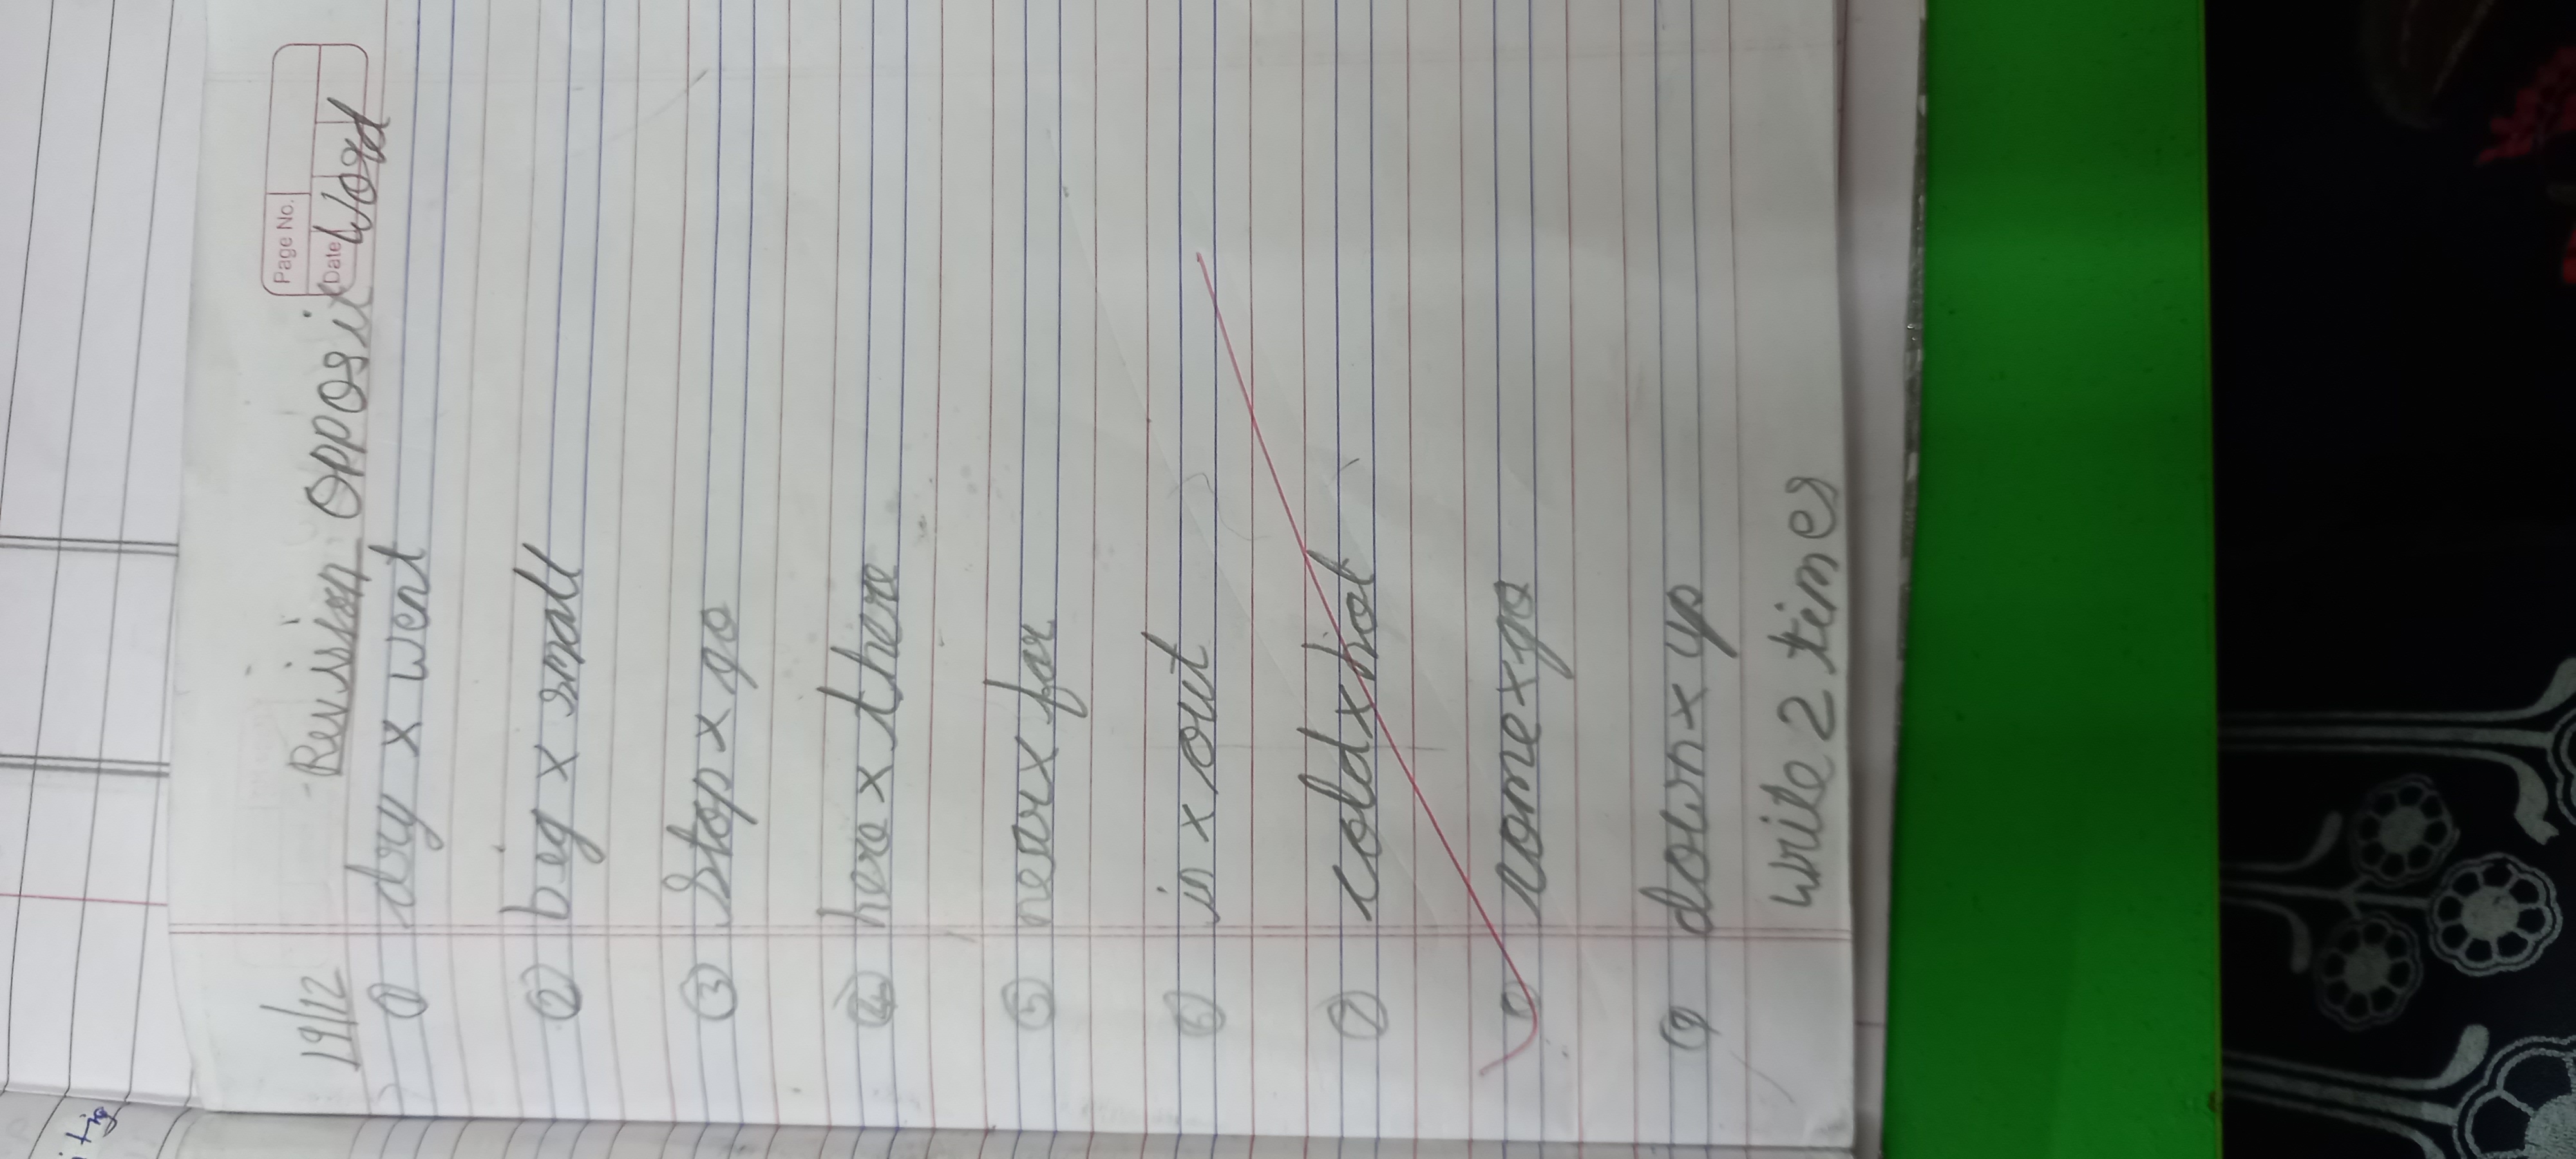 Page No.
Date
19/12 Revission Opposit Word
① dry x went
② big x small
③ stop x go
④ here x there
⑤ near x far
⑥ in x out
⑦ cold x hot
come x go
⑨ down x up
write 2 times